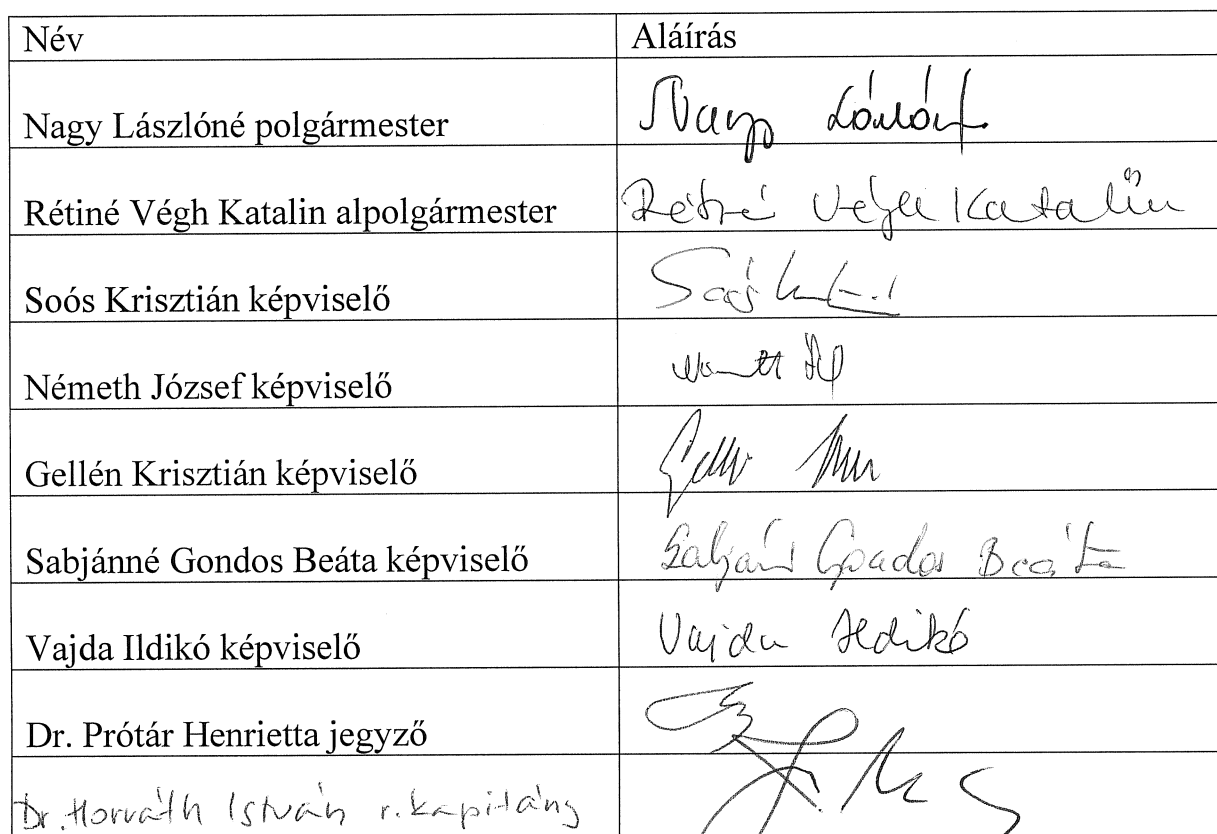 Név Aláírás
Nagy Lászlóné polgármester Nagy
Rétiné Végh Katalin alpolgármester Rétiné Végh Katalin
Soós Krisztián képviselő Soós
Németh József képviselő
Gellén Krisztián képviselő
Sabjánné Gondos Beáta képviselő Sabjánné Gondos Beáta
Vajda Ildikó képviselő Vajda Ildikó
Dr. Prótár Henrietta jegyző
Dr. Horváth István r. kapitány